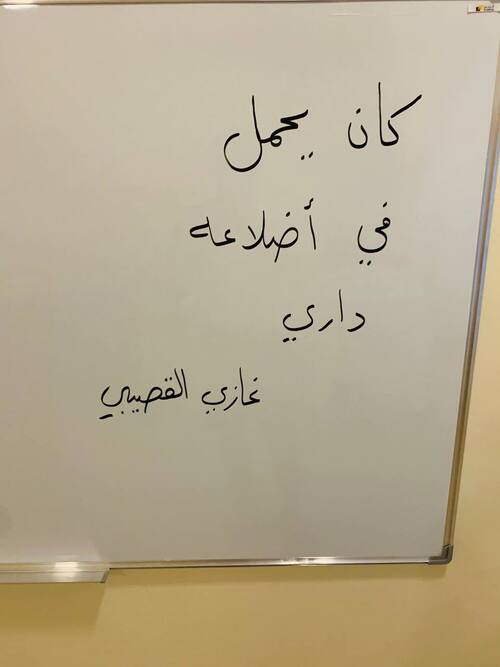 كان يحمل
في أضلاعه
داري
غازي القصيبي